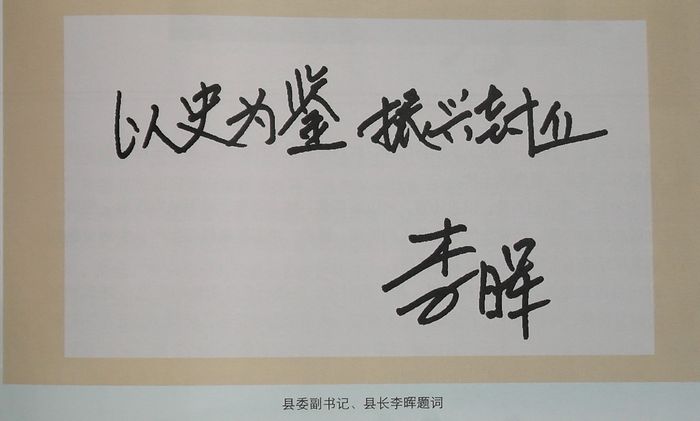 以史为鉴 振兴封丘
李晖
县委副书记、县长李晖题词